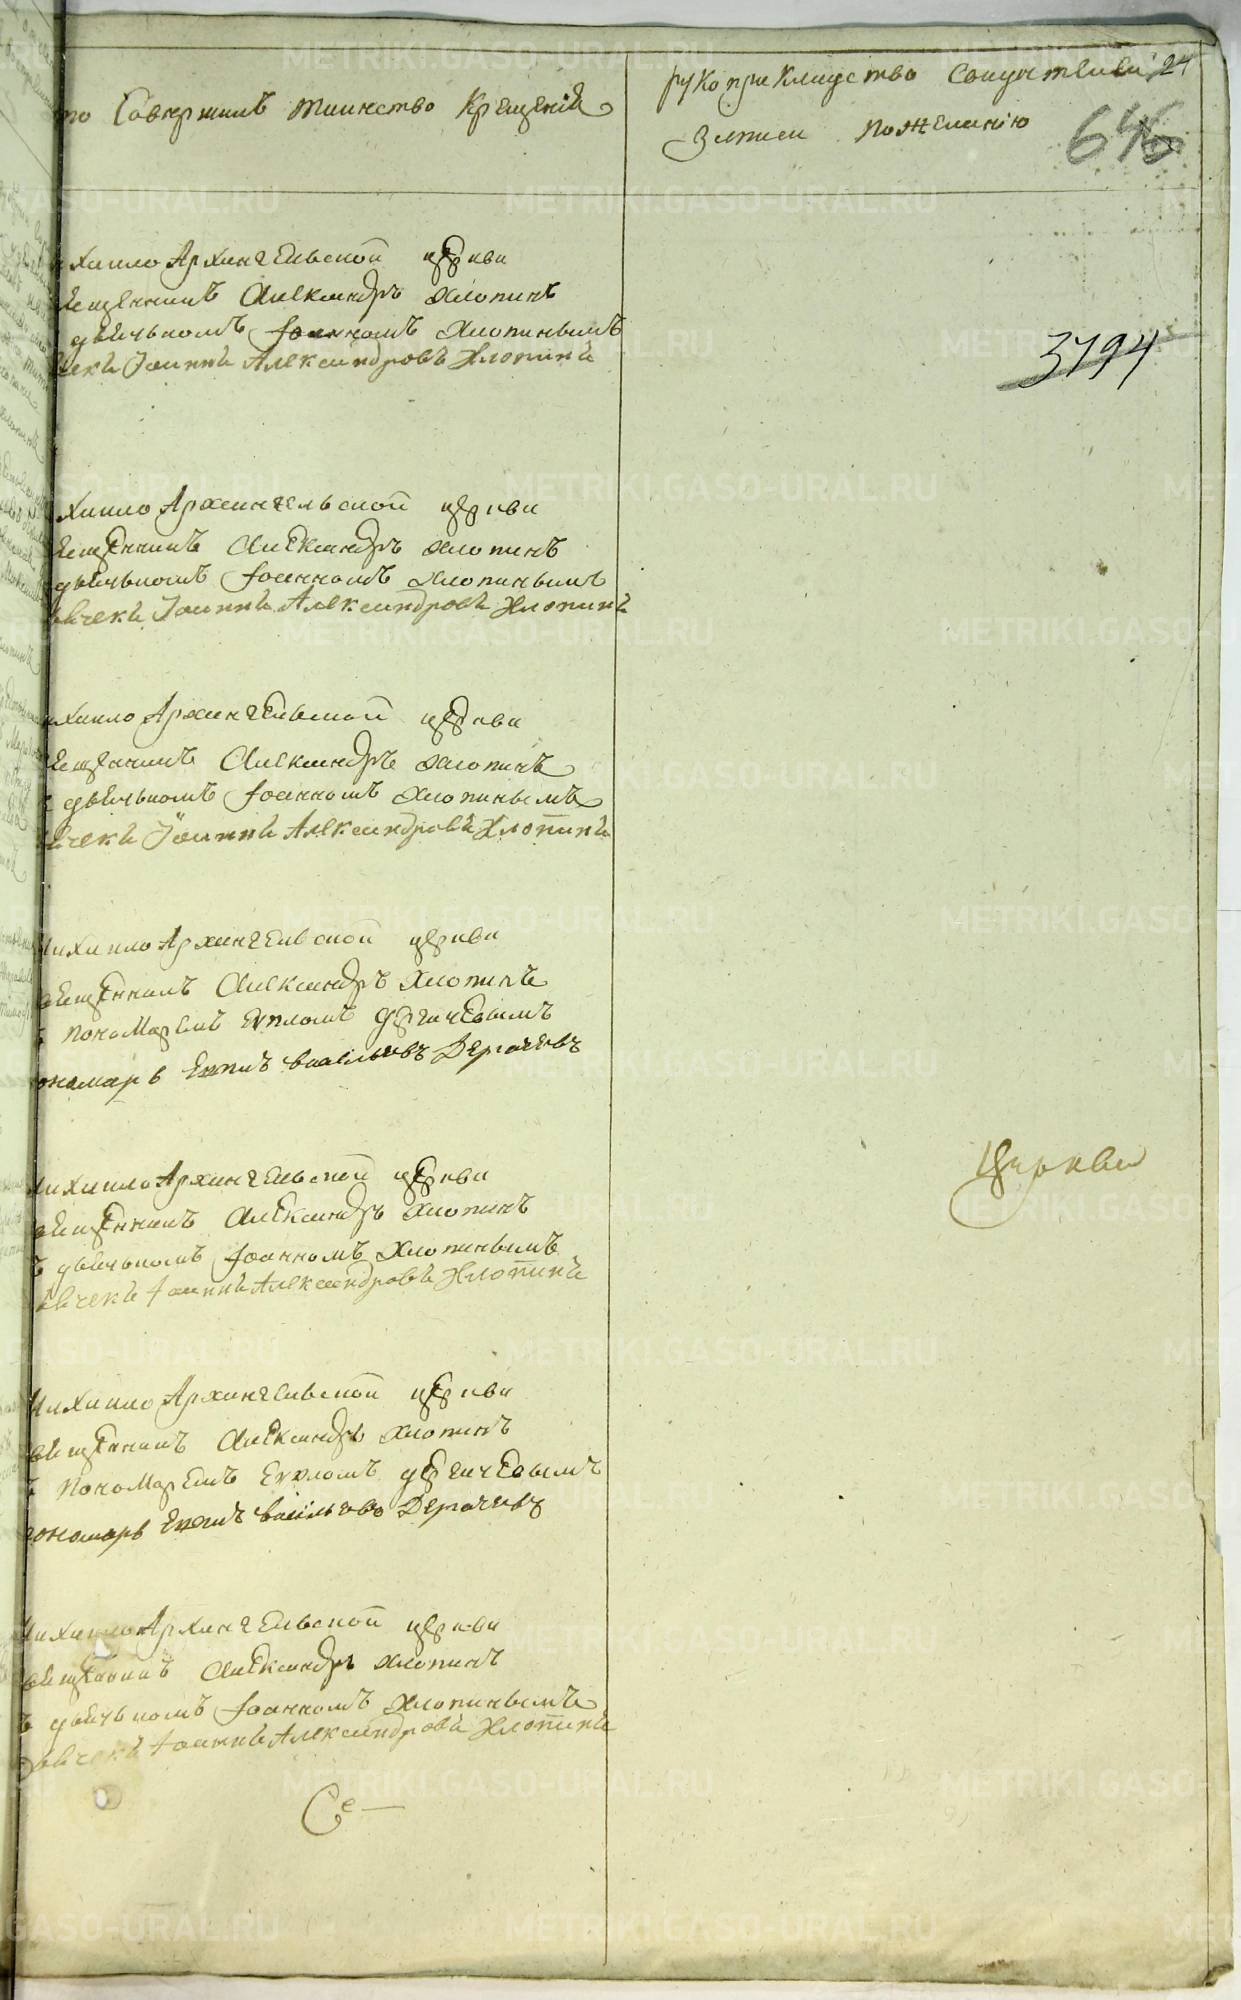 то Совершилъ таинство Крещенія
рукоприкладство свидетелей 24
записи пожеланію
646
хаило Архангельской церкви
вященникъ Александръ Хлопинъ
дьячькомъ Іоанномъ Хлопинымъ
чекъ Іоаннъ Александровъ Хлопинъ
3794
хаило Архангельской церкви
вященникъ Александръ Хлопинъ
дьячькомъ Іоанномъ Хлопинымъ
ьячекъ Іоаннъ Александровъ Хлопинъ
ихаило Архангельской церкви
вященникъ Александръ Хлопинъ
дьячькомъ Іоанномъ Хлопинымъ
ячекъ Іоаннъ Александровъ Хлопинъ
Михаило Архангельской церкви
вященникъ Александръ Хлопинъ
пономаремъ Еупломъ Дергачевымъ
ономарь Еуплъ Васильевъ Дергачевъ
Михаило Архангельской церкви
вященникъ Александръ Хлопинъ
ъ дьячькомъ Іоанномъ Хлопинымъ
ьячекъ Іоаннъ Александровъ Хлопинъ
Церкви
Михаило Архангельской церкви
вященникъ Александръ Хлопинъ
ъ пономаремъ Еупломъ Дергачевымъ
пономарь Еуплъ Васильевъ Дергачевъ
Михаило Архангельской церкви
вященникъ Александръ Хлопинъ
ъ дьячькомъ Іоанномъ Хлопинымъ
Дьячекъ Іоаннъ Александровъ Хлопинъ
Се—
METRIKI.GASO-URAL.RU